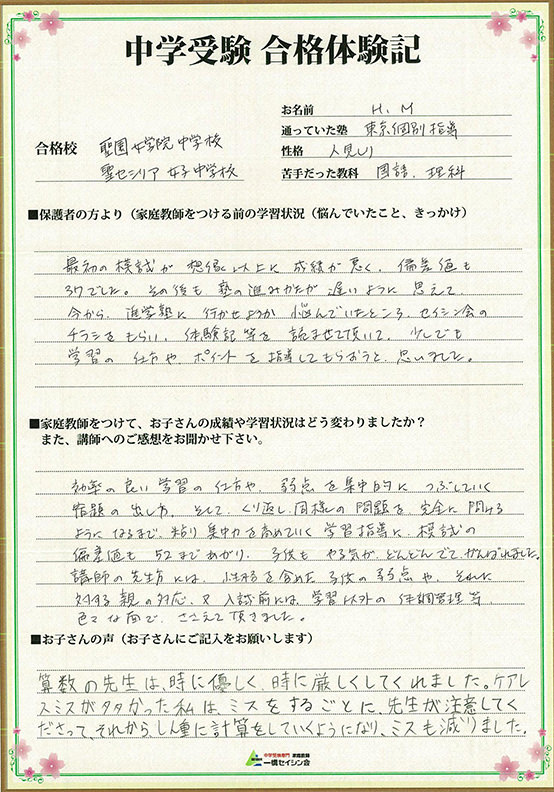 中学受験 合格体験記
お名前 H.M
通っていた塾 東京個別指導
合格校 聖園女学院中学校
聖セシリア女子中学校
性格 人見しり
苦手だった教科 国語.理科
■保護者の方より（家庭教師をつける前の学習状況（悩んでいたこと、きっかけ）
最初の模試が想像以上に成績が悪く、偏差値も
37でした。その後も塾の進みかたが遅いように思えて
今から、進学塾に行かせようか悩んでいたところ、セイシン会の
チラシをもらい、体験記等を読ませて頂いて、少しでも
学習の仕方やポイントを指導してもらおうと、思いました。
■家庭教師をつけて、お子さんの成績や学習状況はどう変わりましたか？
また、講師へのご感想をお聞かせ下さい。
効率の良い学習の仕方や、弱点を集中的につぶしていく
宿題の出し方、そして、くり返し同様の問題を、完全に解ける
ようになるまで、粘り集中力を高めていく学習指導に、模試の
偏差値も52まであがり、子供もやる気が、どんどんでて、がんばれました。
講師の先生方には、性格を含めた子供の弱点や、それに
対する親の対応、又入試前には、学習以外の体調管理等、
色々な面で、ささえて頂きました。
■お子さんの声（お子さんにご記入をお願いします）
算数の先生は、時に優しく、時に厳しくしてくれました。ケアレ
スミスが多かった私は、ミスをするごとに、先生が注意してく
ださって、それから、しん重に計算をしていくようになり、ミスも減りました。
中学受験専門 家庭教師
一橋セイシン会